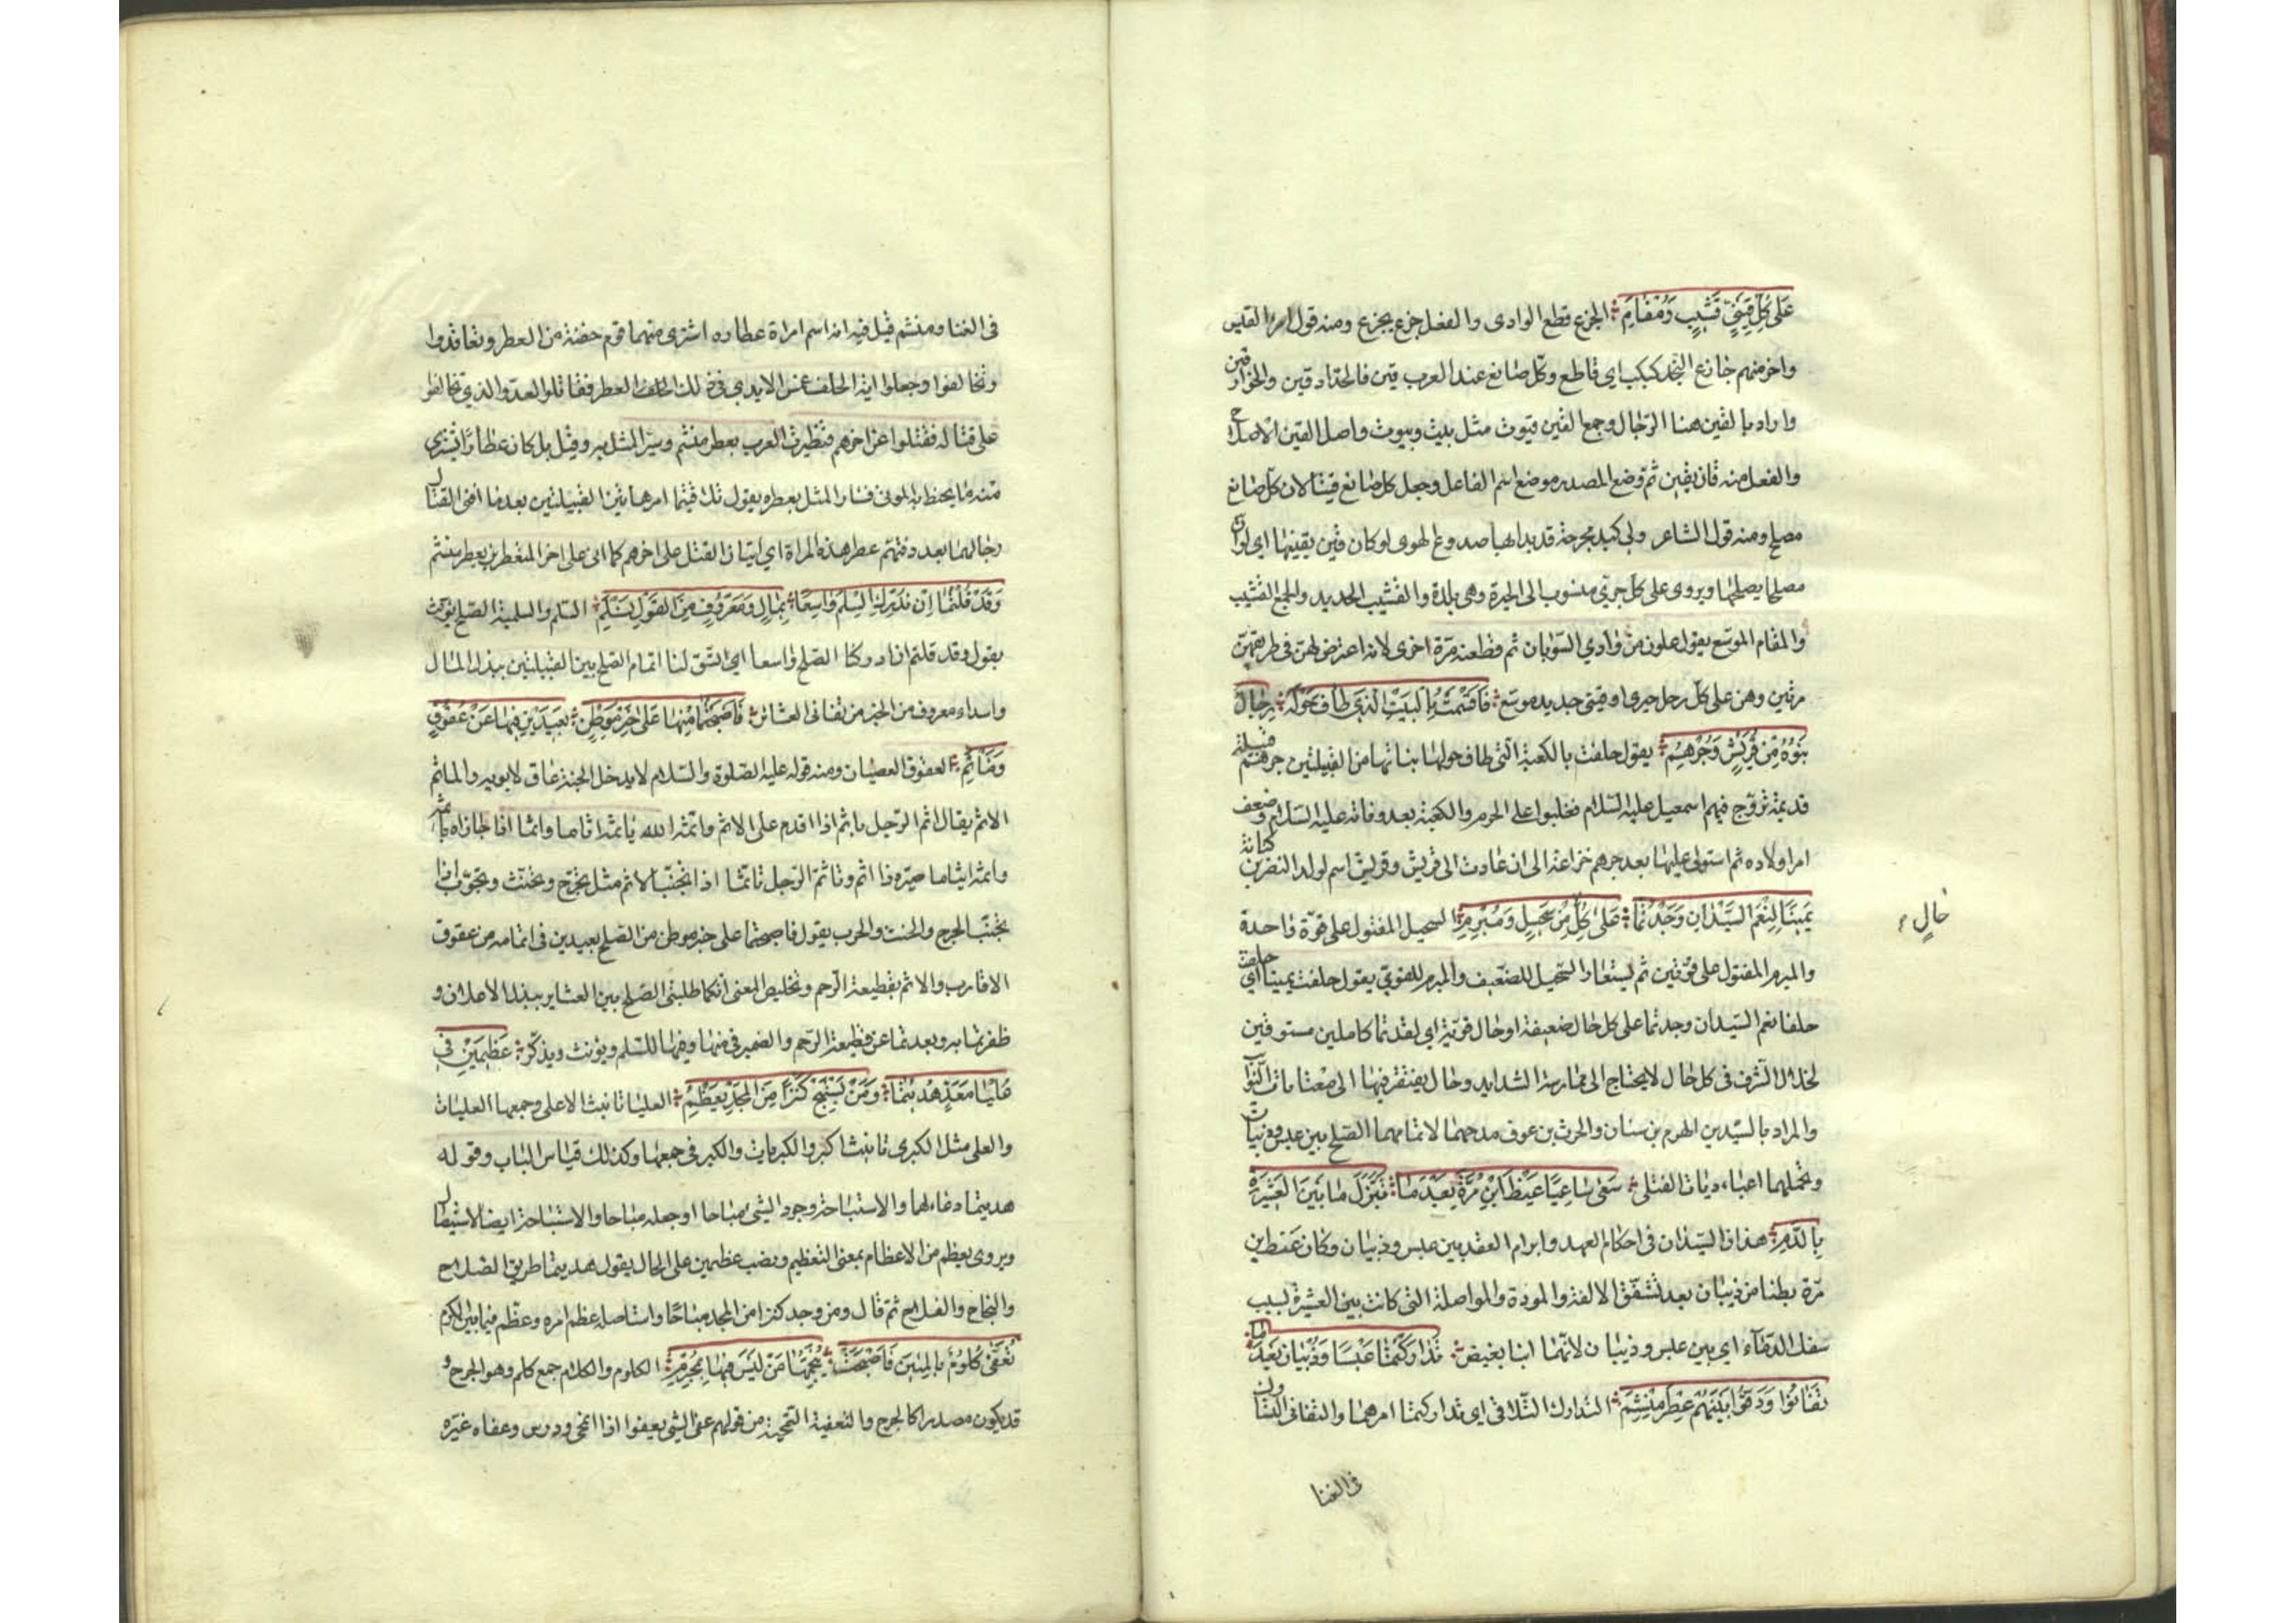 عَلى كُلِّ قَيْنِيٍّ قَشِيبٍ وَمُفْاَمِ الجزع قطع الوادى والفعل جزع يجزع ومنه قول امرا القيس
واخر منهم جازع النجد كبكب اى قاطع وكل صانع عند العرب قين فالحداد قين والخراز قين
واراد بالقين هنا الرحال وجمع القين قيون مثل بيت وبيوت واصل القين الاصلاح
والفعل منه قان يقين ثم وضع المصدر موضع اسم الفاعل وجعل كل صانع قينا لان كل صانع
مصلح ومنه قول الشاعر ولى كبد مجرحة قد بدا بها صدوع لهوى لو كان قين يقينها اى لو ان
مصلحا يصلحها ويروى على كل حيرى منسوب الى الحيرة وهى بلدة والقشيب الجديد والجمع القشب
والمفام الموسع يقول علون من وادي السوبان ثم قطعنه مرة اخرى لانه اعترض لهن فى طريقهن
مرتين وهن على كل رحل حيرى او قينى جديد موسع فَاَقْسَمْتُ بِالبَيْتِ الَّذى طافَ حَوْلَهُ رِجالٌ
بَنَوْهُ مِنْ قُرَيْشٍ وَجُرْهُمِ يقول حلفت بالكعبة التى طاف حولها بناتها من القبيلتين جرهم قبيلة
قديمة تزوج فيهم اسمعيل عليه السلام فغلبوا على الحرم والكعبة بعد وفاته عليه السلام وضعف
امر اولاده ثم استولى عليها بعد جرهم خزاعة الى ان عادت الى قريش وقريش اسم لولد النضر بن كنانة
يَميناً لَنِعْمَ السَّيِّدانِ وَجَدْتُما عَلى كُلِّ مِنْ سَحيلٍ وَمُبْرَمِ السحيل المفتول على قوة واحدة
حالٍ
والمبرم المفتول على قوتين ثم يستعار السحيل للضعيف والمبرم للقوى يقول حلفت يمينا اى حلفت
حلفا نعم السيدان وجدتما على كل حال ضعيفة او حال قوية اى لقدتما كاملين مستوفين
لخلال الشرف فى كل حال لا يحتاج الى ممارسة الشدايد وحال يفتقر فيها الى معاناة النوآئب
والمراد بالسيدين الهرم بن سنان والحرث بن عوف مدحهما لاتمامهما الصلح بين عبس وذبيان
وتحملهما اعباء ديات القتلى سَعى ساعِيا غَيْظَ ابْنِ مُرَّةَ بَعْدَ ما تَبَزَّلَ ما بَيْنَ العَشيرَةِ
بِالدَّمِ هذان السيدان فى احكام العهد وابرام العقد بين عبس وذبيان وكان غيظ بن
مرة بطنا من ذبيان بعد تشقق الالفة والمودة والمواصلة التى كانت بين العشيرة لسبب
سفك الدمآء اى بين عبس وذبيان لانهما ابنا بغيض تَدارَكْتُما عَبْساً وَذُبْيانَ بَعْدَ ما
تَفانَوْا وَدَقُّوا بَيْنَهُمْ عِطْرَ مَنْشِمِ التدارك التلافى اى تداركتما امرهما والتفانى التشارك
فى الفنا
فى الفنا ومنشم قيل فيه انه اسم امراة عطاره اشترى منهما قوم حفنة من العطر وتعاقدوا
وتحالفوا وجعلوا اية الحلف غمس الايدي فى ذلك العطر فقاتلوا العدو الذي تحالفوا
على قتاله فقتلوا عن اخرهم فتطيرت العرب بعطر منشم وسيّر المثل به وقيل بل كان عطارا يشترى
منه ما يحنط به الموتى فسار المثل بعطره يقول تلافيتما امرهما بين القبيلتين بعد ما افنى القتال
رجالهما بعد دقهم عطر هذه المراة اي اتيان القتل على اخرهم كما اتى على اخر المتعطرين بعطر منشم
وَقَدْ قُلْتُما اِنْ نُدْرِكِ السِّلْمَ واسِعاً بِمالٍ وَمَعْرُوفٍ مِنَ القَوْلِ نَسْلَمِ السلم والسلمية الصلح يؤنث
يقول وقد قلتم ان ادركنا الصلح واسعا اى اتسق لنا اتمام الصلح بين القبيلتين ببذل المال
واسداء معروف من الخير من تفانى العشائر فَاَصْبَحْتُما مِنْها عَلى خَيْرِ مَوْطِنٍ بَعيدَيْنِ فيها عَنْ عُقُوقٍ
وَمَاْثَمِ العقوق العصيان ومنه قوله عليه الصلوة والسلام لا يدخل الجنة عاق لابويه والماثم
الاثم يقال اثم الرجل ياثم اذا اقدم على الاثم واثمه الله ياثمه اثاما واثما اذا جازاه باثمه
واثمه ايثاما صيره ذا اثم وتاثم الرجل تاثما اذا تجنب الاثم مثل تحرج وتحنث وتحوب اذا
تجنب الحرج والحنث والحوب يقول فاصبحتما على خير موطن من الصلح بعيدين فى اتمامه من عقوق
الاقارب والاثم بقطيعة الرحم وتخليص المعنى انكما طلبتما الصلح بين العشاير ببذل الاعلاق و
ظفرتما به وبعدتما عن قطيعة الرحم والضمير فى منها وفيها للسلم ويؤنث ويذكر عَظيمَيْنِ فى
عُلْيا مَعَدٍّ هُديتُما وَمَنْ يَسْتَبِحْ كَنْزاً مِنَ المَجْدِ يَعْظُمِ العليا تانيث الاعلى وجمعها العليات
والعلى مثل الكبرى تانيث اكبر والكبريات والكبر فى جمعها وكذلك قياس الباب وقوله
هديتما دعاء لهما والاستباحة وجود الشى مباحا او جعله مباحا والاستباحة ايضا الاستيصال
ويروى يعظم من الاعظام بمعنى التعظيم ونصب عظيمين على الحال يقول هديتما طريق الصلاح
والنجاح والفلاح ثم قال ومن وجد كنزا من المجد مباحا واستاصله عظم امره وعظم فيما بين الكرم
تُعَفَّى كُلُومُ بِالمِئينَ فَاَصْبَحَتْ يُنَجِّمُها مَنْ لَيْسَ فيها بِمُجْرِمِ الكلوم والكلام جمع كلم وهو الجرح و
قد يكون مصدرا كالجرح والتعفية التمحية من قولهم عفى الشى يعفوا اذا انمحى ودرس وعفاه غيره